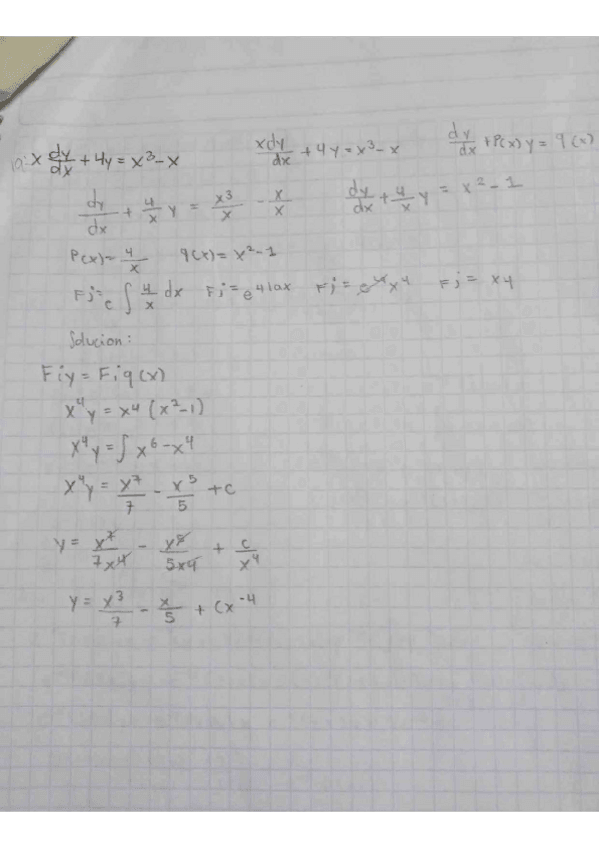 10. x dy/dx + 4y = x³ - x    xdy/dx + 4y = x³ - x    dy/dx + P(x) y = q(x)
dy/dx + 4/x y = x³/x - x/x    dy/dx + 4/x y = x² - 1
P(x) = 4/x    q(x) = x² - 1
Fi = e ∫ 4/x dx    Fi = e⁴ˡⁿˣ    Fi = x⁴    Fi = x4
Solucion:
Fiy = Fiq(x)
x⁴y = x4 (x² - 1)
x⁴y = ∫ x⁶ - x⁴
x⁴y = x⁷/7 - x⁵/5 + c
y = x⁷/7x4 - x⁵/5x4 + c/x⁴
y = x³/7 - x/5 + Cx⁻⁴